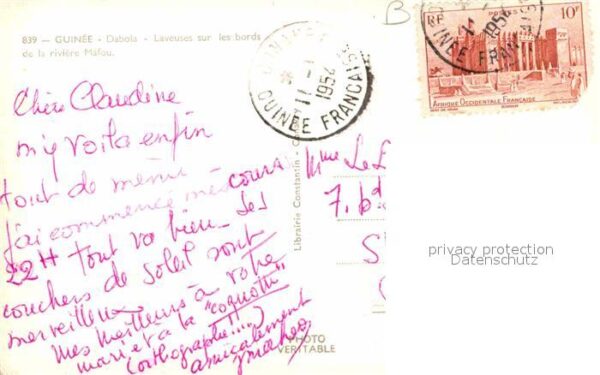 839 - GUINÉE - Dabola - Laveuses sur les bords
de la rivière Mafou.
Chère Claudine
m'y voilà enfin
tout de même
j'ai commencé mes cours
22H tout va bien - Les
couchers de soleil sont
merveilleux.
Mes meilleurs à votre
mari et à la "coquotte"
(orthographe!...)
amicalement
Librairie Constantin
PHOTO
VERITABLE
1954
GUINÉE FRANÇAISE
RF
POSTES
10F
1954
GUINÉE FRANÇAISE
AFRIQUE OCCIDENTALE FRANÇAISE
B
Mme Le
7. bd
privacy protection
Datenschutz